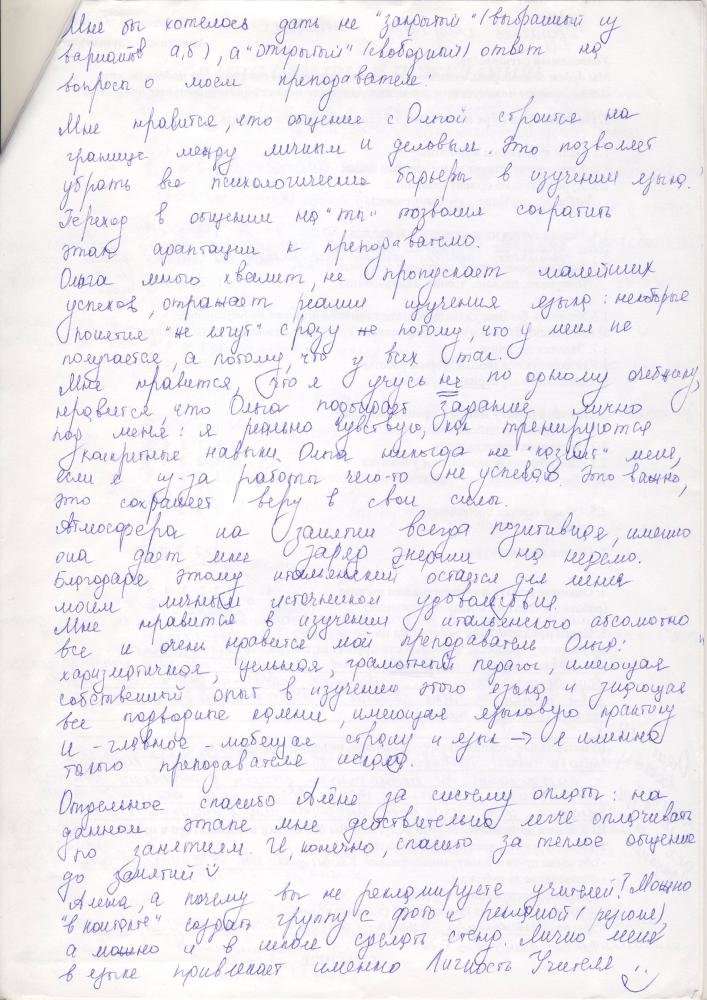 Мне бы хотелось дать не "закрытый" (выбранный из
вариантов а,б), а "открытый" (свободный) ответ на
вопросы о моем преподавателе!
Мне нравится, что общение с Ольгой строится на
границе между личным и деловым. Это позволяет
убрать все психологические барьеры в изучении языка.
Переход в общении на "ты" позволил сократить
этап адаптации к преподавателю.
Ольга много хвалит, не пропускает малейших
успехов, отражает реалии изучения языка: некоторые
понятия "не лезут" сразу не потому, что у меня не
получается, а потому, что у всех так.
Мне нравится, что я учусь не по одному учебнику,
нравится, что Ольга подбирает задание лично
под меня: я реально чувствую, как тренируются
конкретные навыки. Ольга никогда не "казнит" меня,
если я из-за работы чего-то не успеваю. Это важно,
это сохраняет веру в свои силы.
Атмосфера на занятии всегда позитивная, именно
она дает мне заряд энергии на неделю.
Благодаря этому итальянский остается для меня
моим личным источником удовольствия.
Мне нравится в изучении итальянского абсолютно
все и очень нравится мой преподаватель Ольга:
харизматичная, цельная, грамотный педагог, имеющая
собственный опыт в изучении этого языка и знающая
все подводные камни, имеющая языковую практику
и - главное - любящая страну и язык → я именно
такого преподавателя искала.
Отдельное спасибо Алёне за систему оплаты: на
данном этапе мне действительно легче оплачивать
по занятиям. И, конечно, спасибо за теплое общение
до занятий
а почему вы не рекламируете учителей? Можно
"в контакте" создать группу с фото и рекламой (резюме)
а можно и в школе сделать стенд. Лично меня
в языке привлекает именно Личность Учителя